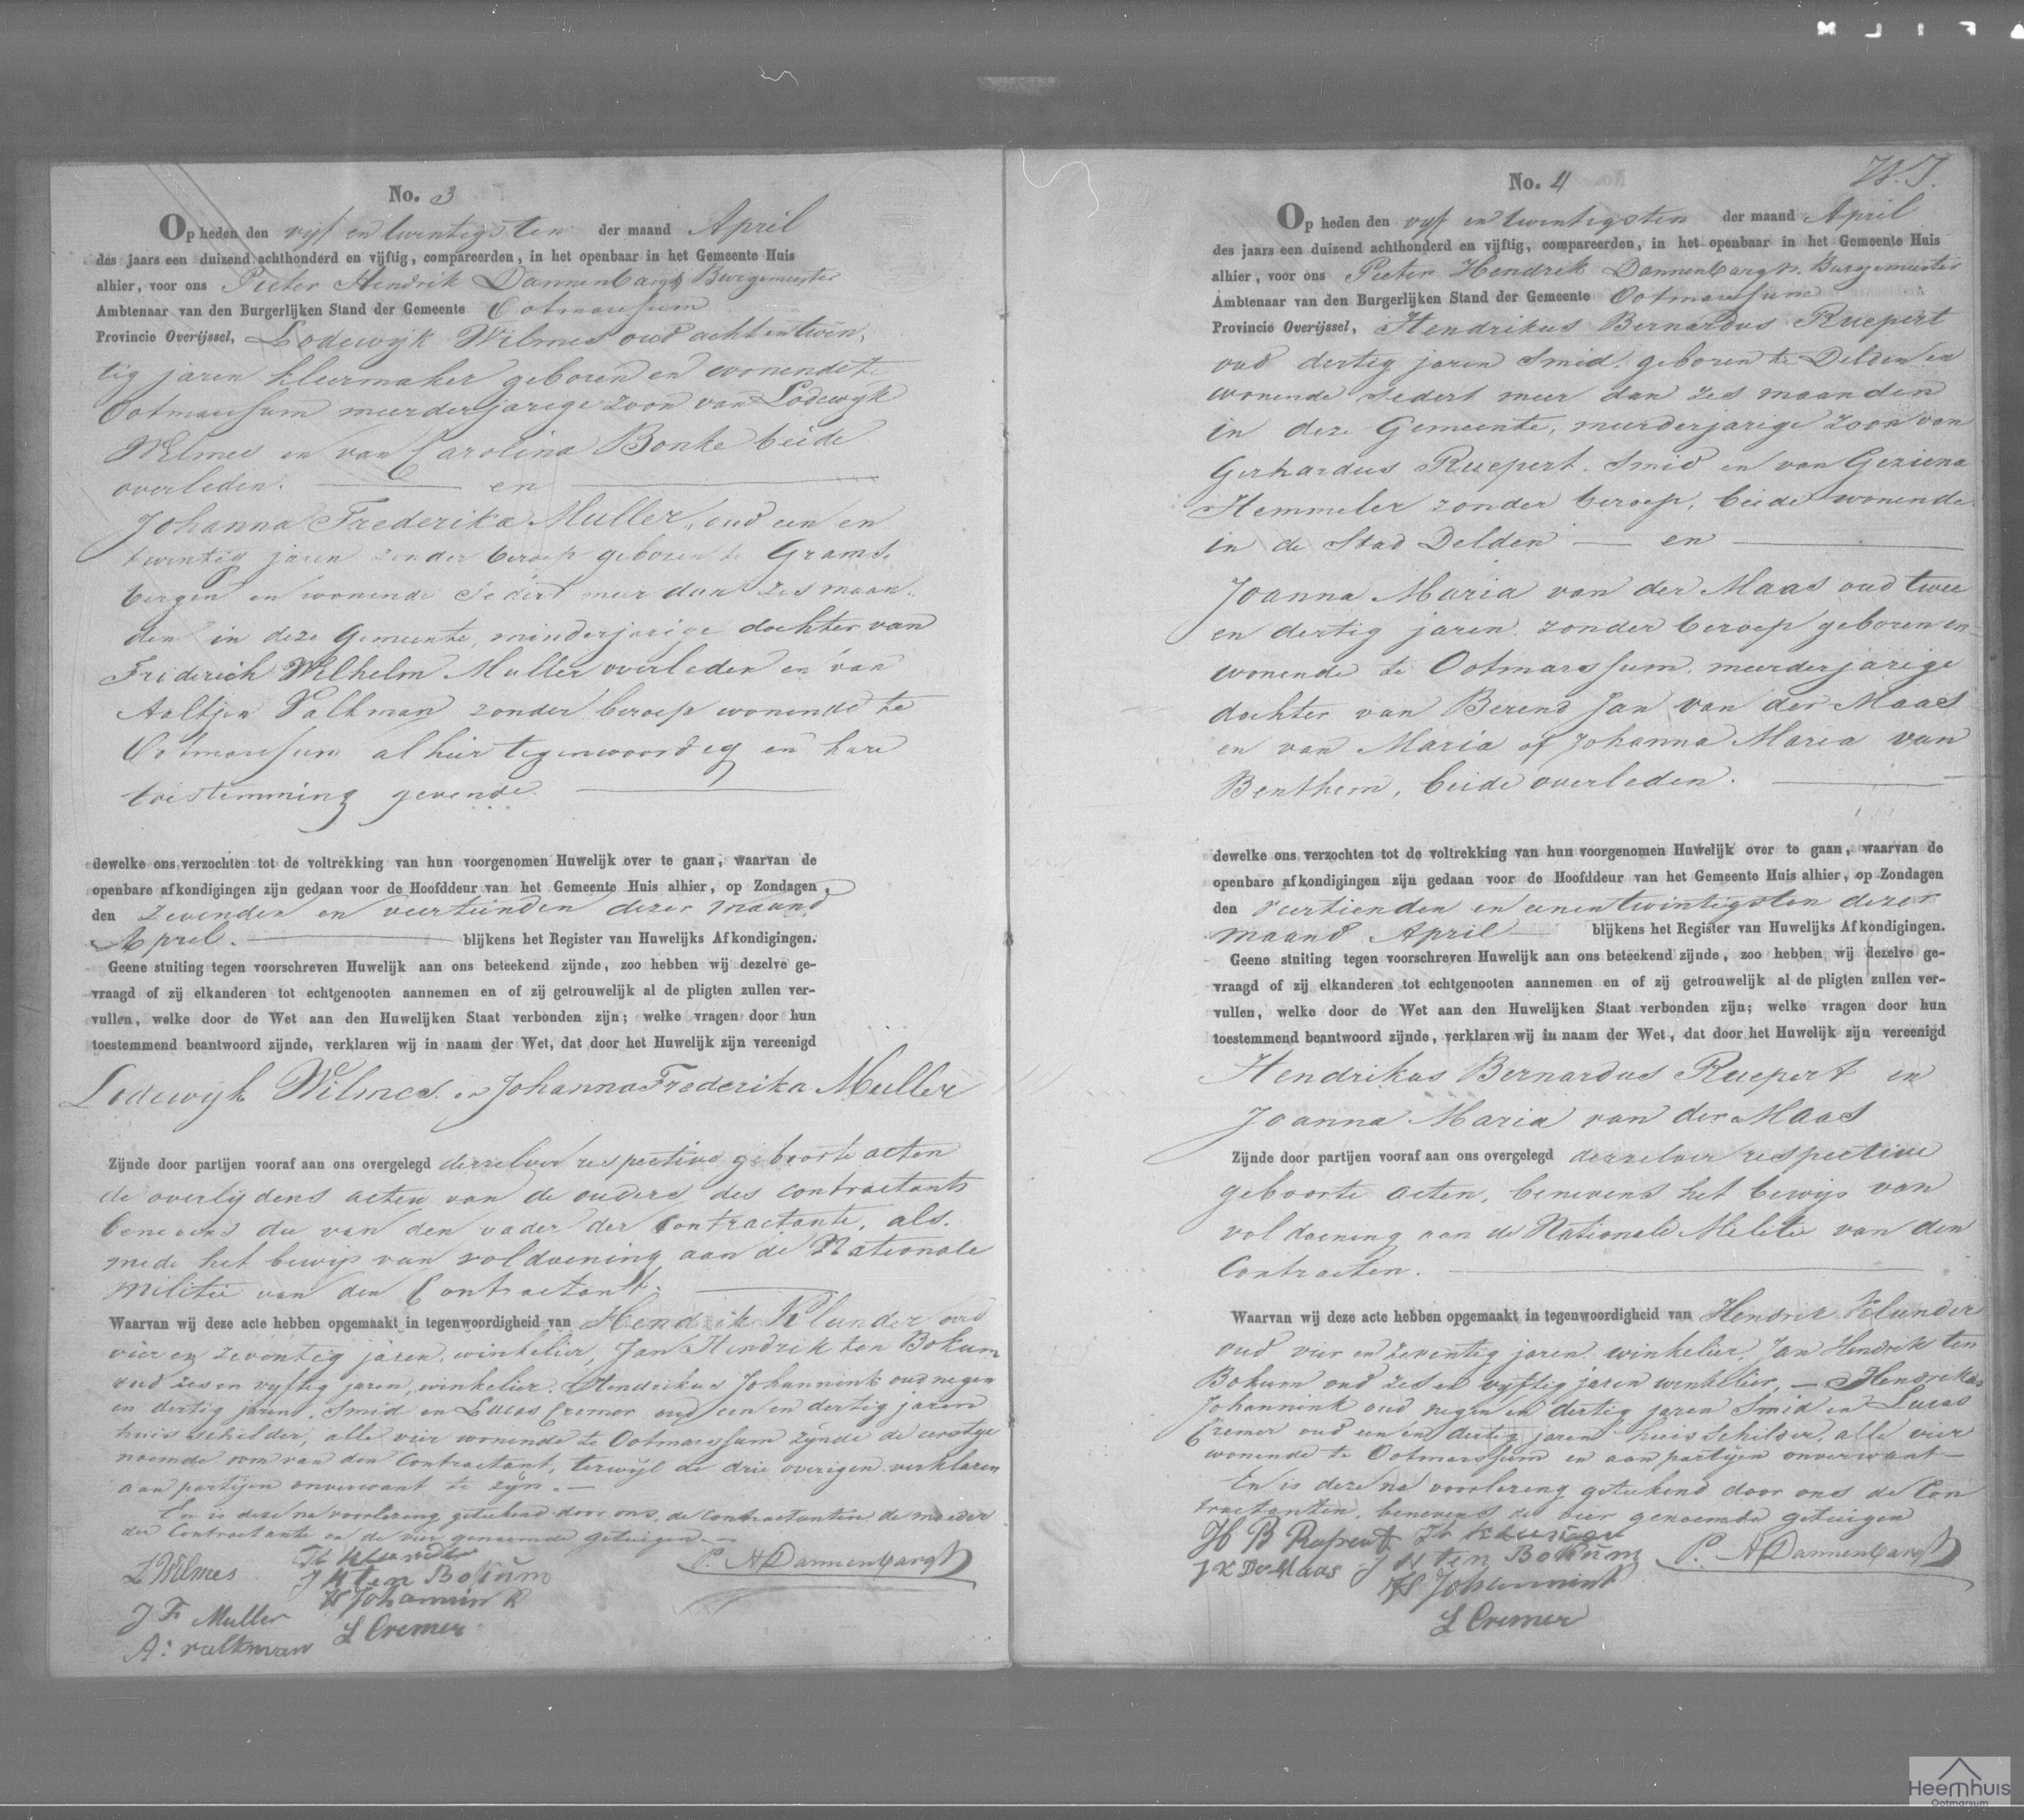 No. 3
Op heden den vijf en twentigsten der maand April
des jaars een duizend achthonderd en vijftig, compareerden, in het openbaar in het Gemeente Huis
alhier, voor ons Pieter Hendrik Dannenbargh Burgemeester
Ambtenaar van den Burgerlijken Stand der Gemeente Ootmarssum
Provincie Overijssel, Lodewijk Wilmes oud acht en twin,
tig jaren kleermaker geboren en wonende te
Ootmarssum meerderjarige zoon van Lodewijk
Wilmes en van Carolina Bonke beide
overleden. en
Johanna Frederika Muller, oud een en
twintig jaren zonder beroep geboren te Grams,
bergen en wonende sedert meer dan zes maan,
den in deze Gemeente, minderjarige dochter van
Friderich Wilhelm Muller overleden en van
Aaltjen Valkman zonder beroep wonende te
Ootmarssum alhier tegenwoordig en hare
toestemming gevende.
dewelke ons verzochten tot de voltrekking van hun voorgenomen Huwelijk over te gaan, waarvan de
openbare afkondigingen zijn gedaan voor de Hoofddeur van het Gemeente Huis alhier, op Zondagen,
den zevenden en veertienden dezer maand
April. blijkens het Register van Huwelijks Afkondigingen.
Geene stuiting tegen voorschreven Huwelijk aan ons beteekend zijnde, zoo hebben wij dezelve ge-
vraagd of zij elkanderen tot echtgenooten aannemen en of zij getrouwelijk al de pligten zullen ver-
vullen, welke door de Wet aan den Huwelijken Staat verbonden zijn; welke vragen door hun
toestemmend beantwoord zijnde, verklaren wij in naam der Wet, dat door het Huwelijk zijn vereenigd
Lodewijk Wilmes. en Johanna Frederika Muller
Zijnde door partijen vooraf aan ons overgelegd derzelver respective geboorte acten
de overlijdens acten van de ouders des contractants
benevens die van den vader der Contractante, als.
mede het bewijs van voldoening aan de Nationale
Militie van den Contractant.
Waarvan wij deze acte hebben opgemaakt in tegenwoordigheid van Hendrik Klunder oud
vier en zeventig jaren, winkelier, Jan Hendrik ten Bokum
oud zes en vyftig jaren, winkelier. Hendrikus Johannink oud negen
en dertig jaren, Smid en Lucas Cremer oud een en dertig jaren
huisschilder, alle vier wonende te Ootmarssum zijnde de eerstge
noemde oom van den Contractant, terwijl de drie overigen verklaren
aan partijen onverwant te zijn.
En is deze na voorlezing geteekend door ons, de contractanten de moeder
der Contractante en de vier genoemde getuigen
L Wilmes
H Klunder
P. H Dannenbargh
J H ten Bokum
H Johannink
J F Muller
L Cremer
A: valkman
No. 4
Op heden den vyf en twintigsten der maand April
des jaars een duizend achthonderd en vijftig, compareerden, in het openbaar in het Gemeente Huis
alhier, voor ons Pieter Hendrik Dannenbargh. Burgemeester
Ambtenaar van den Burgerlijken Stand der Gemeente Ootmarssum
Provincie Overijssel, Hendrikus Bernardus Ruepert
oud dertig jaren Smid. geboren te Delden en
wonende sedert meer dan zes maanden
in deze Gemeente, meerderjarige zoon van
Gerhardus Ruepert. Smid en van Geziena
Hemmeler zonder beroep, beide wonende
in de Stad Delden en
Joanna Maria van der Maas oud twee
en dertig jaren. zonder beroep geboren en
wonende te Ootmarssum. meerderjarige
dochter van Berend Jan van der Maas
en van Maria of Johanna Maria van
Benthem, beide overleden.
dewelke ons verzochten tot de voltrekking van hun voorgenomen Huwelijk over te gaan, waarvan de
openbare afkondigingen zijn gedaan voor de Hoofddeur van het Gemeente Huis alhier, op Zondagen
den veertienden en eenentwintigsten dezer
maand April blijkens het Register van Huwelijks Afkondigingen.
Geene stuiting tegen voorschreven Huwelijk aan ons beteekend zijnde, zoo hebben wij dezelve ge-
vraagd of zij elkanderen tot echtgenooten aannemen en of zij getrouwelijk al de pligten zullen ver-
vullen, welke door de Wet aan den Huwelijken Staat verbonden zijn; welke vragen door hun
toestemmend beantwoord zijnde, verklaren wij in naam der Wet, dat door het Huwelijk zijn vereenigd
Hendrikus Bernardus Ruepert en
Joanna Maria van der Maas
Zijnde door partijen vooraf aan ons overgelegd derzelver respective
geboorte acten, benevens het bewijs van
voldoening aan de Nationale Militie van den
Contracten.
Waarvan wij deze acte hebben opgemaakt in tegenwoordigheid van Hendrik Klunder
oud vier en zeventig jaren winkelier, Jan Hendrik ten
Bokum oud zes en vyftig jaren winkelier, Hendrikus
Johannink oud negen en dertig jaren Smid en Lucas
Cremer oud een en dertig jaren huisschilder, alle vier
wonende te Ootmarssum en aan partijen onverwant
En is deze na voorlezing geteekend door ons de Con
tractanten, benevens de vier genoemde getuigen
H B Rupert. H Klunder
J H ten Bokum P. H Dannenbargh
H Johannink
L Cremer
Heemhuis
Ootmarsum